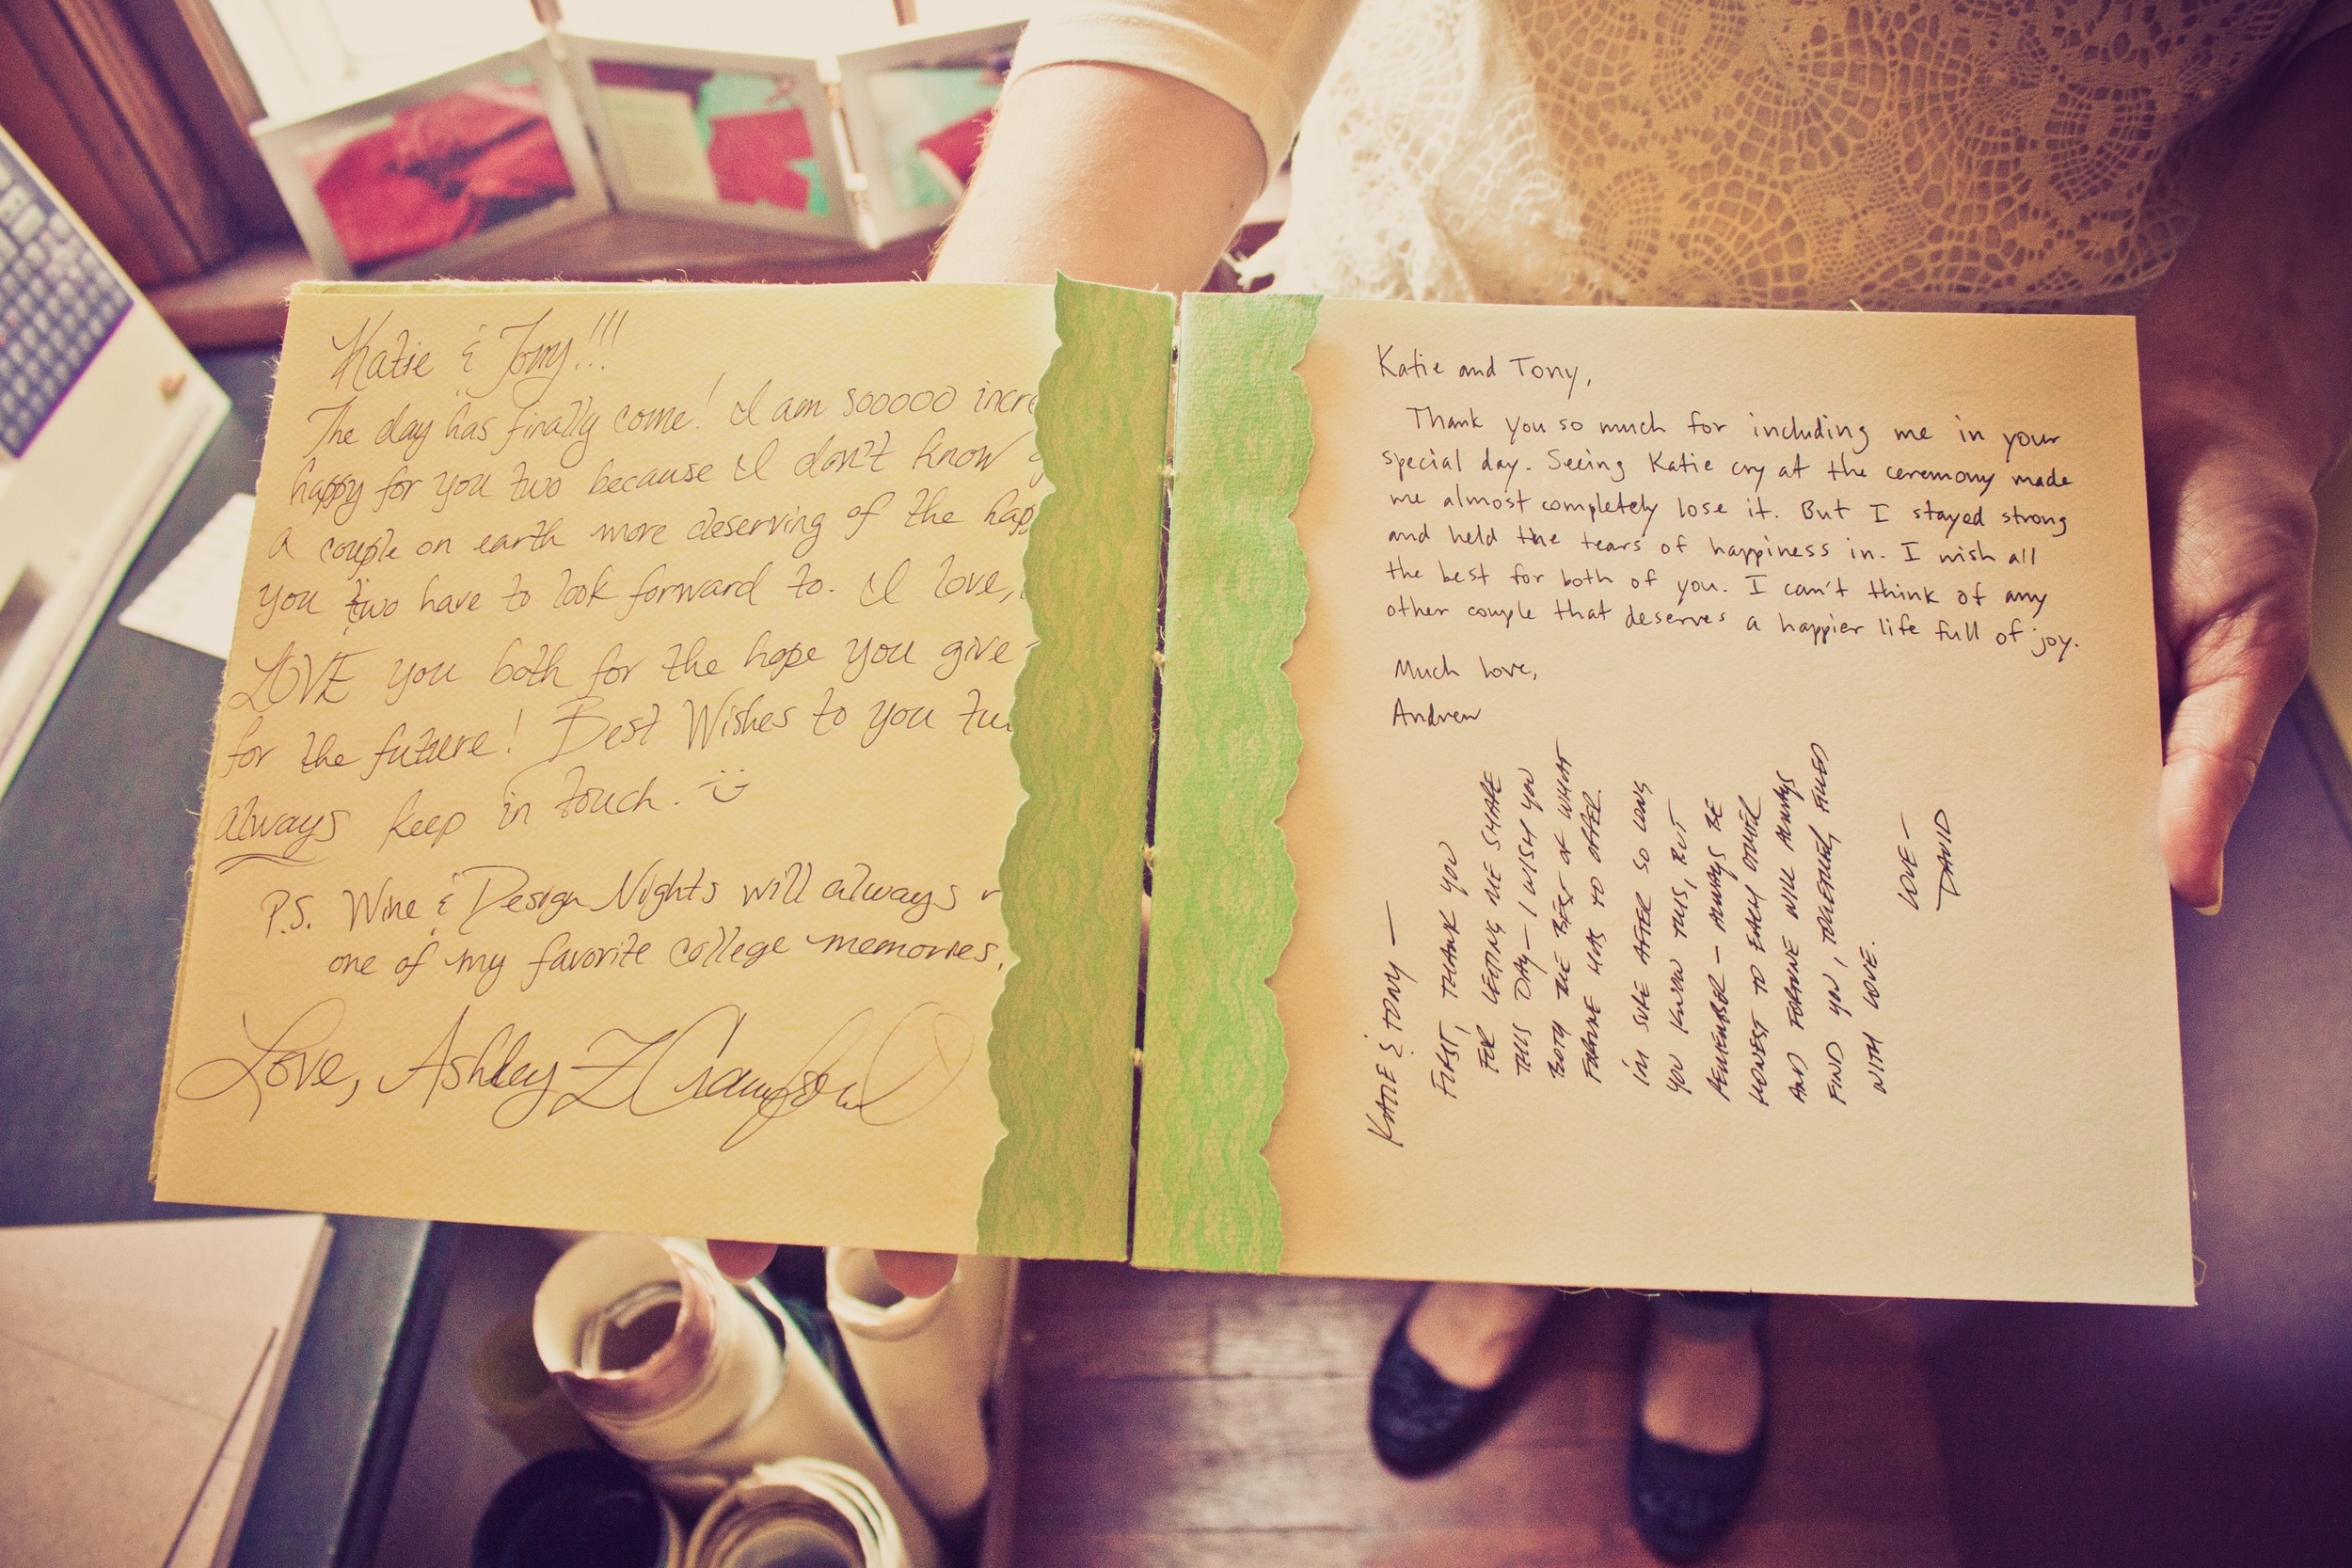 Katie & Tony!!!
The day has finally come! I am sooooo incre
happy for you two because I don't know
a couple on earth more deserving of the hap
you two have to look forward to. I love,
LOVE you both for the hope you give
for the future! Best Wishes to you tw
always keep in touch. :)
P.S. Wine & Design Nights will always
one of my favorite college memories.
Love, Ashley Z Crawford
Katie and Tony,
Thank you so much for including me in your
special day. Seeing Katie cry at the ceremony made
me almost completely lose it. But I stayed strong
and held the tears of happiness in. I wish all
the best for both of you. I can't think of any
other couple that deserves a happier life full of joy.
Much love,
Andrew
KATIE & TONY —
FIRST, THANK YOU
FOR LETTING ME SHARE
THIS DAY — I WISH YOU
BOTH THE BEST OF WHAT
FORTUNE HAS TO OFFER.
I'M SURE AFTER SO LONG
YOU KNOW THIS, BUT
REMEMBER — ALWAYS BE
HONEST TO EACH OTHER
AND FORTUNE WILL ALWAYS
FIND YOU, TOGETHER, FILLED
WITH LOVE.
LOVE —
DAVID